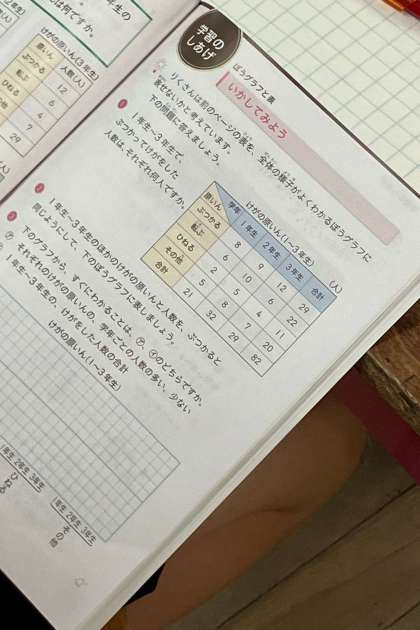 学習の
しあげ
ぼうグラフと表
いかしてみよう
りくさんは前のページの表を、全体の様子がよくわかるぼうグラフに
表せないかと考えています。
下の問題に答えましょう。
1年生〜3年生で、
ぶつかってけがをした
人数は、それぞれ何人ですか。
けがの原いん(1〜3年生) (人)
原いん 学年 1年生 2年生 3年生 合計
ぶつかる 8 9 12 29
転ぶ 6 10 6 22
ひねる 2 5 4 11
その他 5 8 7 20
合計 21 32 29 82
1年生〜3年生のほかのけがの原いんと人数を、ぶつかると
同じようにして、下のぼうグラフに表しましょう。
下のグラフから、すぐにわかることは、㋐、㋑のどちらですか。
㋐ それぞれのけがの原いんの、学年ごとの人数の多い、少ない
㋑ 1年生〜3年生の、けがをした人数の合計
けがの原いん(1〜3年生)
1年生 2年生 3年生
ひねる
1年生 2年生 3年生
その他
年生の
は何ですか。
けがの原いん(3年生)
原いん 人数(人)
ぶつかる 12
転ぶ 6
ひねる 4
の他 7
29